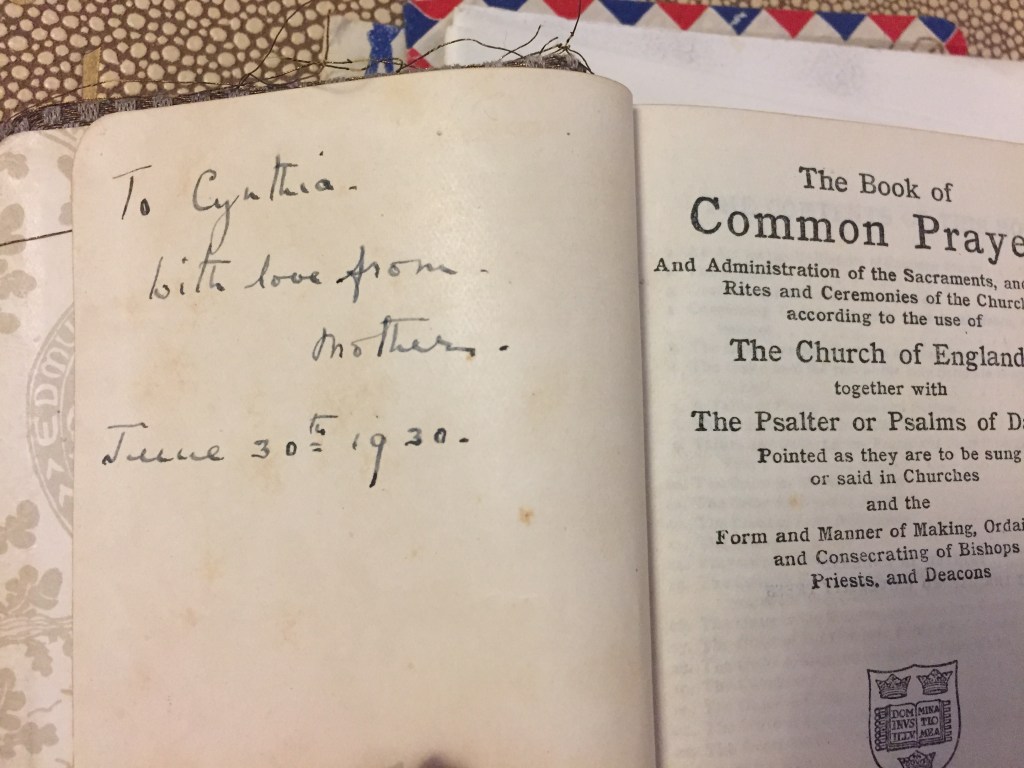 To Cynthia.
with love from.
Mother.
June 30th 1930.
EDMU
The Book of
Common Praye
And Administration of the Sacraments, and
Rites and Ceremonies of the Church
according to the use of
The Church of England
together with
The Psalter or Psalms of Da
Pointed as they are to be sung
or said in Churches
and the
Form and Manner of Making, Ordai
and Consecrating of Bishops
Priests, and Deacons
DOM MINA
INVS TIO
ILLV MEA